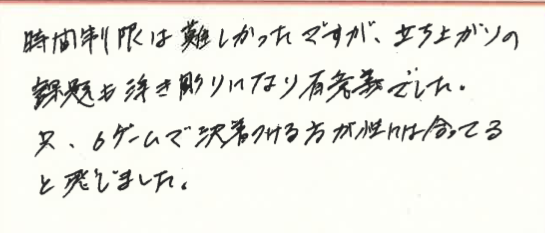 時間制限は難しかったですが、立ち上がりの
課題も浮き彫りになり有意義でした。
只、6ゲームで決着つける方が性には合ってる
と感じました。